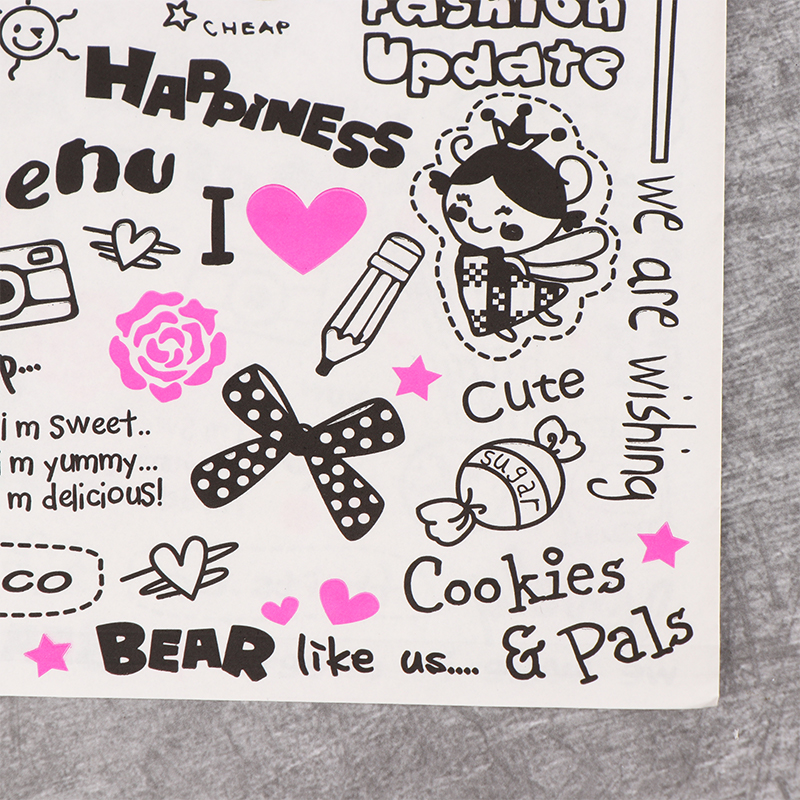 CHEAP
Fashion
Update
HAPPINESS
enu
I
we are wishing
p...
Cute
i m sweet..
i m yummy...
m delicious!
sugar
co
Cookies
& Pals
BEAR like us....